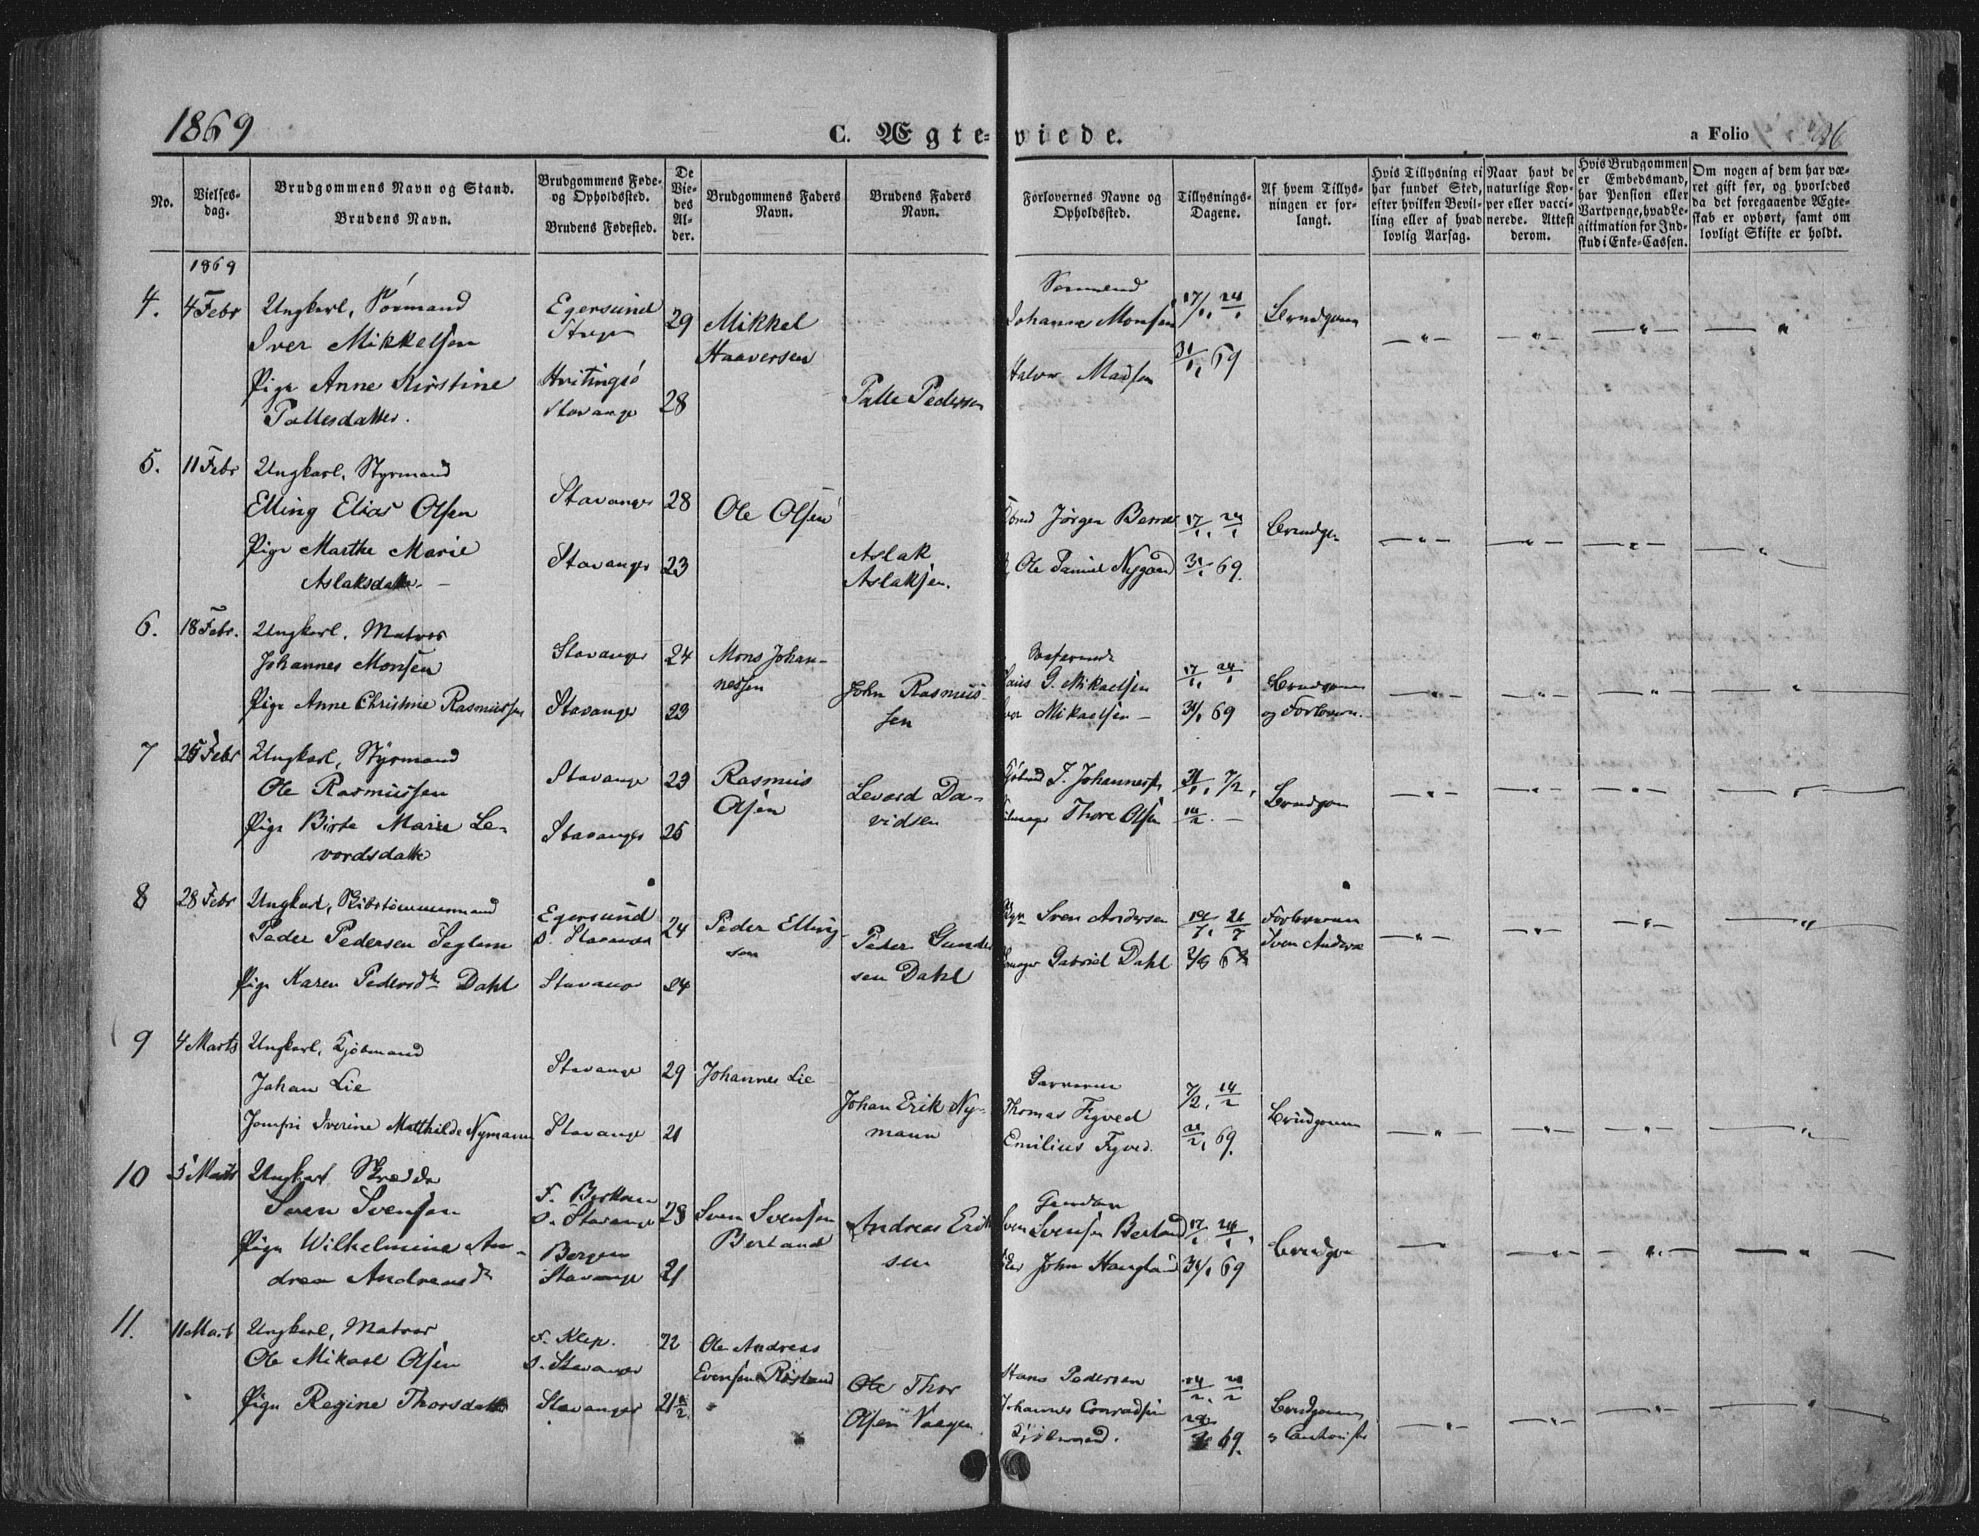 1869
C. Ægte-viede.
a Folio
No.
Vielses-dag.
Brudgommens Navn og Stand.
Brudens Navn.
Brudgommens Føde- og Opholdssted.
Brudens Fødested.
De Viedes Alder.
Brudgommens Faders Navn.
Brudens Faders Navn.
Forlovernes Navne og Opholdsted.
Tillysnings-Dagene.
Af hvem Tillysningen er forlangt.
Hvis Tillysning ei har fundet Sted, efter hvilken Bevilling eller af hvad lovlig Aarsag.
Naar havt de naturlige Kopper eller vaccinerede. Attest derom.
Hvis Brudgommen er Embedsmand, har Pension eller Vartpenge, hvad Legitimation for Indskud i Enke-Cassen.
Om nogen af dem har været gift før, og hvorledes da det foregaaende Ægteskab er ophørt, samt om lovligt Skifte er holdt.
1869
4. 4 Febr Ungkarl,
Iver Mikkelsen
Egersund
29 Mikkel
Haaversen
Johannes Monsen 17/1, 24/1 Brudgom
31/1 69
Halvor Madsen
Pige Anne Kirstine
Tallesdatter.
Hvitingsö
Stavanger 28
Talle Pedersen
5. 11 Febr Ungkarl, Styrmand
Elling Elias Olsen
Stavanger 28 Ole Olsen
Jørgen 17/1, 24/1 Brudg
Pige Marthe Marie
Aslaksdatter
Stavanger 23
Aslak
Aslaksen.
Ole Daniel Nygaard 31/1 69.
6. 18 Febr. Ungkarl, Matros
Johannes Monsen
Stavanger 24 Mons Johan-
nessen
G. Mikaelsen 17/1, 24/1 Brudgom
Pige Anne Christine Rasmussen
Stavanger 23
John Rasmus-
sen
Mikaelsen 31/1 69 og Forlovern.
7 25 Febr Ungkarl, Styrmand
Ole Rasmussen
Stavanger 23 Rasmus
Olsen
J. Johannessen 31/1, 7/2, Brudgom
Pige Birte Marie Le-
vordsdatter
Stavanger 25
Levord Da-
vidsen
Thore Olsen 14/2
8 28 Febr Ungkarl, Skibstömmermand
Peder Pedersen Seglem
Egersund
o. Stavanger 24 Peder Elling-
sen
Sven Andersen Forloveren
Sven Anders
Pige Karen Pedersdtr Dahl
Stavanger 24
Peder Gunder
sen Dahl
Gabriel Dahl
9 4 Marts Ungkarl, Kjöbmand
Johan Lie
Stavanger 29 Johannes Lie
Garverne
Thomas Figved 7/2, 14/2 Brudgommen
Jomfru Iverine Matthilde Nymann
Stavanger 21
Johan Erik Ny-
mann
Emilius Figved. 21/2, 69.
10 5 Marts Ungkarl Skrædder
Sven Svensen
o. Stavanger 23 Sven Svensen
Berland
Svensen Berland 17/1, 24/1, Brudgom
Pige Wilhelmine An-
drea Andreasdtr
Bergen
Stavanger 21
Andreas Erik
sen
John Haugland 31/1 69
11. 11 Mart Ungkarl, Matros
Ole Mikael Olsen
F. Klep.
o. Stavanger 22 Ole Andreas
Evensen
Hans Pedersen 14/2, 21/2 Brudgommen
Pige Regine Thorsdatter
Stavanger 21½
Ole Thor
Olsen
Johannes Conradsen
Kjöbmand. 69.